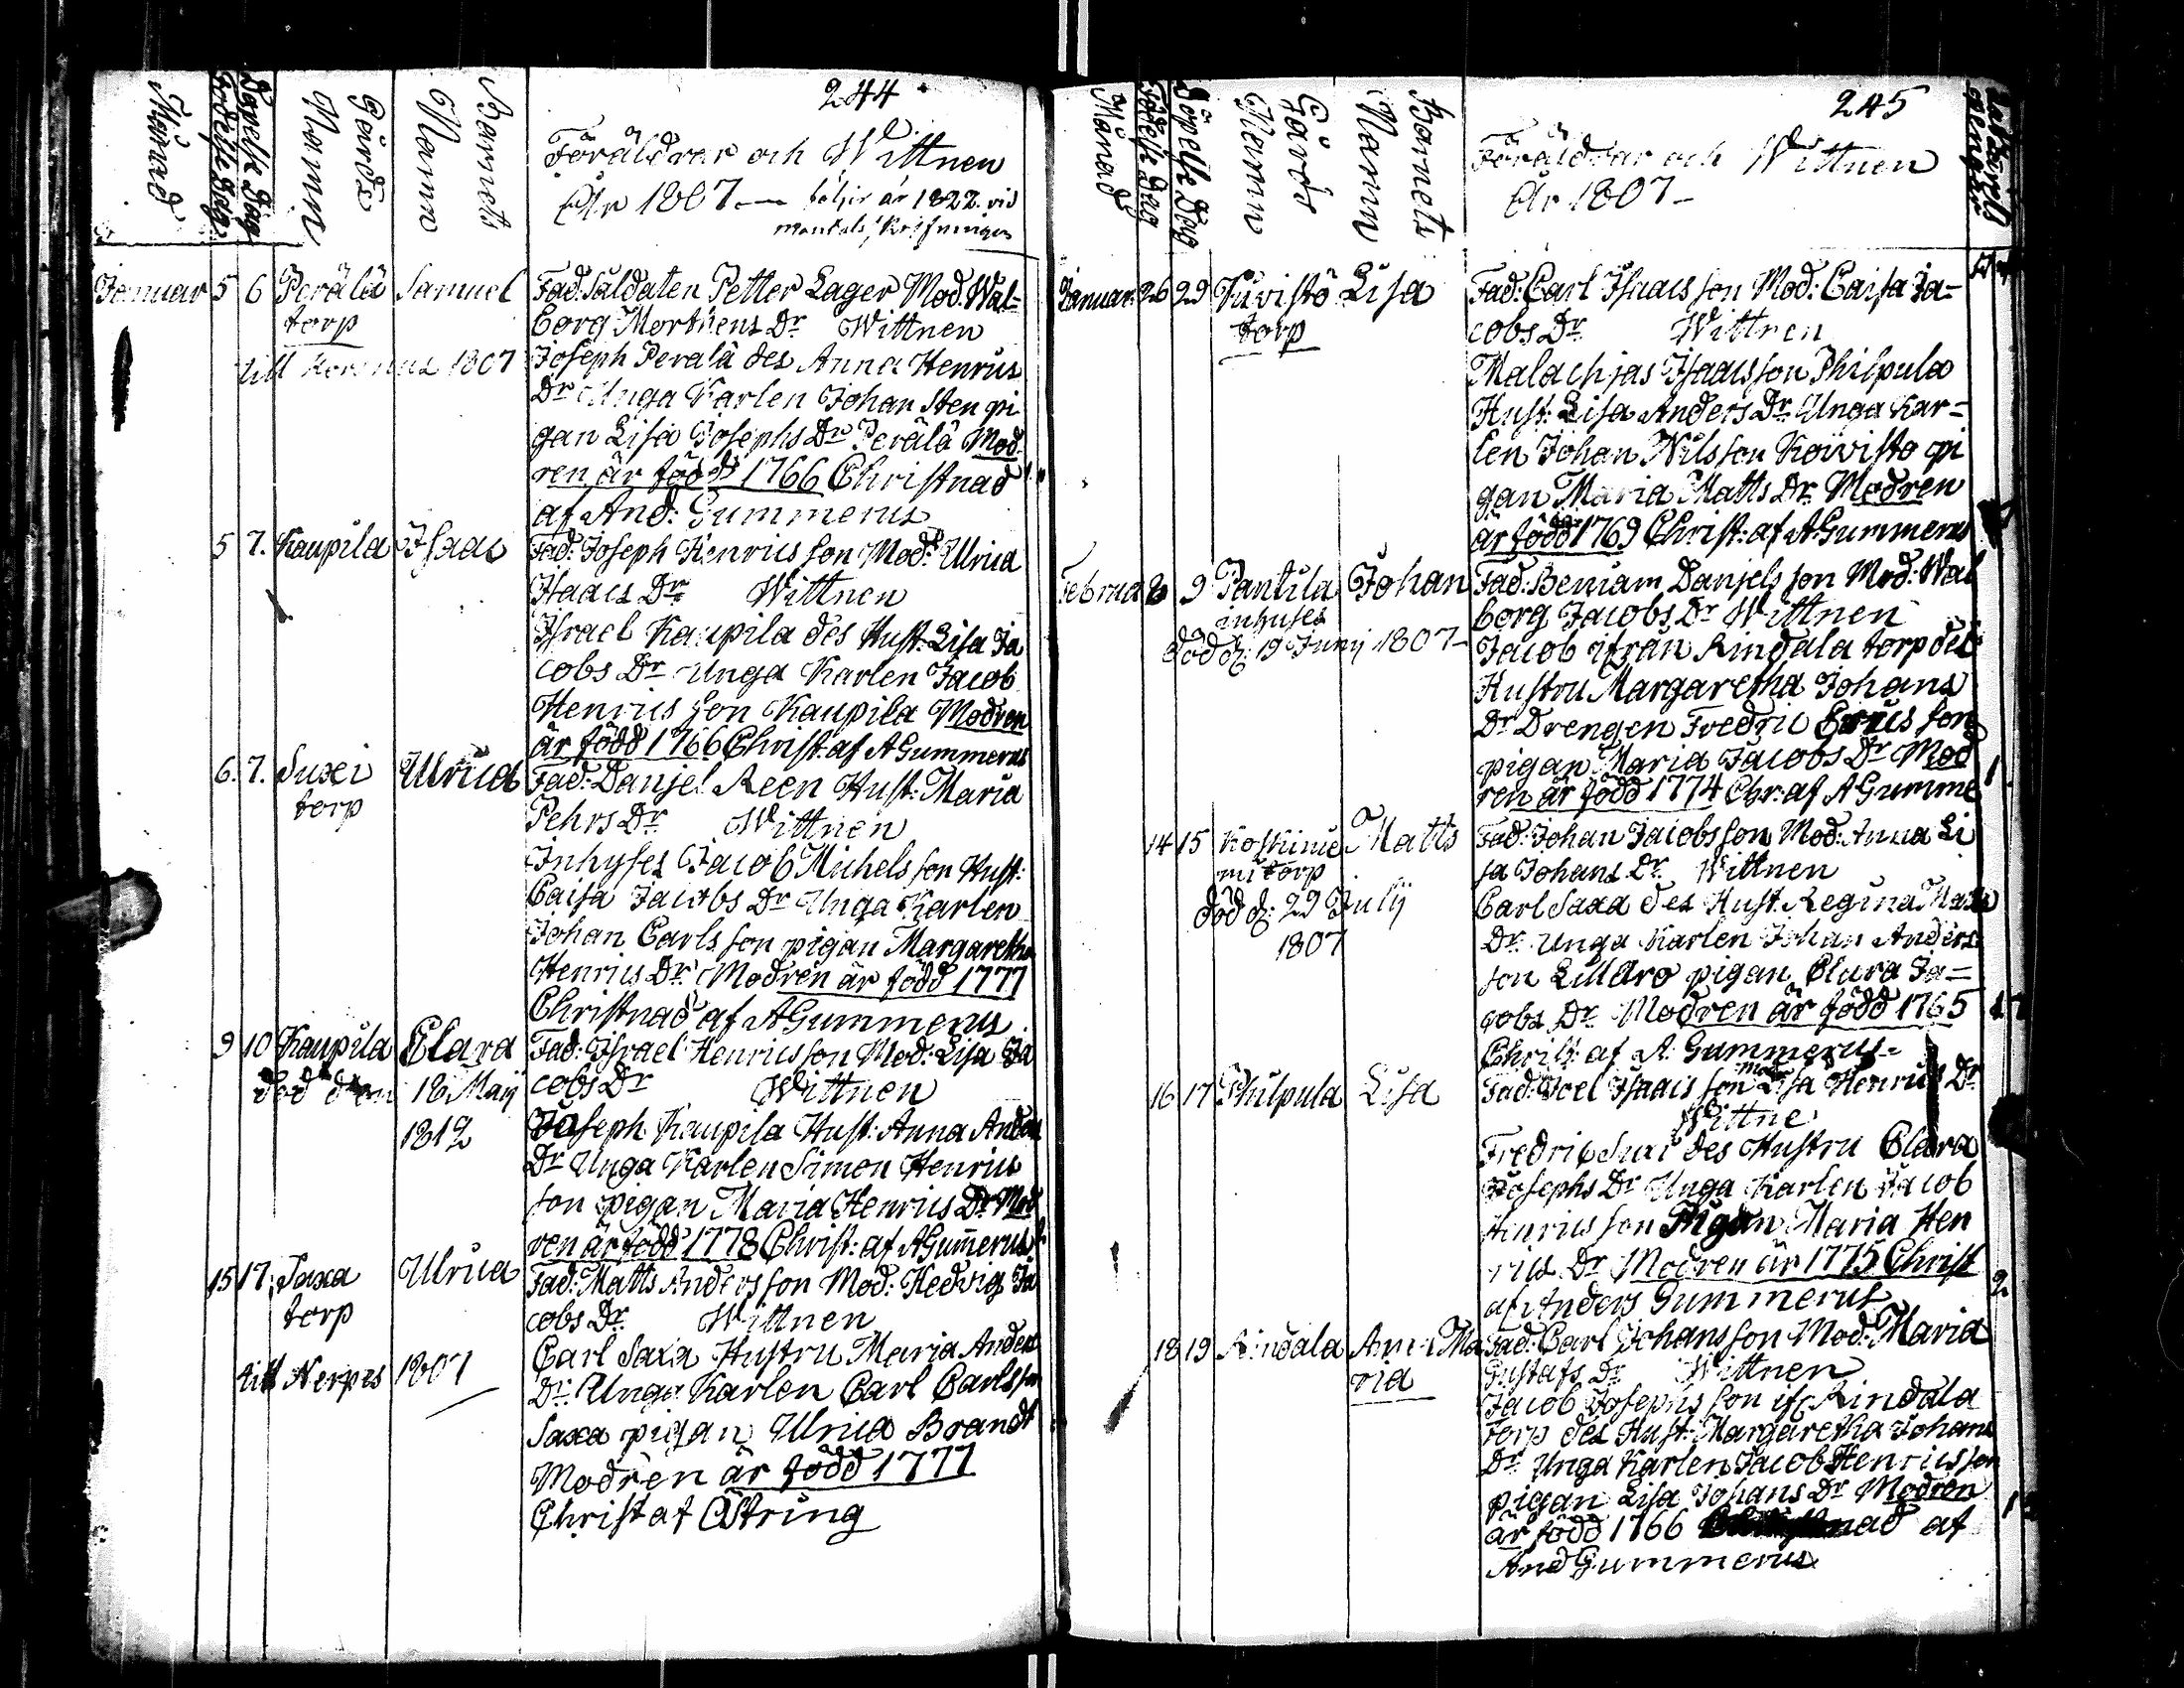 244
Månad
Födelse Dag
Döpelse Dag
Gårds
Namn
Barnets
Namn
Föräldrar och Wittnen
År 1807 följer år 1822 vid
mantals skrifningen
Januar 5 6 Perälä Samuel Fad: Saldaten Petter Lager Mod. Wal=
torp borg Morthens Dr Wittnen
till 1807 Joseph Perälä des Anna Henrics
Dr Unga Karlen Johan Sten pi
gan Lisa Josephs Dr Perälä Mod
ren är född 1766 Christnad
af And: Gummerus
5 7. Kaupila Isaac Fad: Joseph Henrics son Mod: Ulrica
Isaacs Dr Wittnen
Israel Kaupila des Hust. Lisa Ja
cobs Dr Unga Karlen Jacob
Henrics son Kaupila Modren
är född 1766 Christ: af A Gummerus
6. 7. Suxi Ulrica Fad: Danjel Reen Hust: Maria
torp Pehrs Dr Wittnen
Inhyses Jacob Michels son Hust:
Caisa Jacobs Dr Unga Karlen
Johan Carls son pigan Margaretha
Henrics Dr Modren är född 1777
Christnad af A Gummerus
9 10 Kaupila Clara Fad: Israel Henrics son Mod: Lisa Ja
död den 18 Maij cobs Dr Wittnen
1812 Joseph Kaupila Hust: Anna Anders
Dr Unga Karlen Simon Henrics
son pigan Maria Henrics Dr Mod
ren är född 1778 Christ: af A Gum̄erus
15 17. Saxa Ulrica Fad: Matts Anders son Mod: Hedvig Ja
torp cobs Dr Wittnen
Carl Saxa Hustru Maria Anders
till Nerpes 1807 Dr Unga Karlen Carl Carls son
Saxa pigan Ulrica Brandt
Modren är född 1777
Christ af Östring
245
Månad
Födelse Dag
Döpelse Dag
Gårds
Namn
Barnets
Namn
Föräldrar och Wittnen
År 1807
Januar. 26 29 Lisa Fad: Carl Isaacs son Mod: Caisa Ja-
torp cobs Dr Wittnen
Malachias Isaacs son Philpula
Hust: Lisa Anders Dr Unga Kar=
len Johan Nils son Koivisto pi
gan Maria Matts Dr Modren
är född 1769 Christ: af A Gummerus
Februa 9 Pantila Johan Fad: Beniam Danjels son Mod: Wal
inhyses borg Jacobs Dr Wittnen
död d: 19 Junij 1807 Jacob ifrån Rindala torp des
Hustru Margaretha Johans
Dr Drengen Fredric son
pigan Maria Jacobs Dr Mod
ren är född 1774 Chr: af A Gumme
14 15 Koskinie Matts Fad: Johan Jacobs son Mod: Anna Li
mi torp sa Johans Dr Wittnen
död d: 29 Julij Carl Saxa des Hust: Regina Matts
1807 Dr Unga Karlen Johan Anders
son pigan Clara Ja=
cobs Dr Modren är född 1765
Christ: af A. Gummerus
16 17 Philpula Lisa Fad: Joel Isaacs son Mod Lisa Henrics Dr
Wittne
Fredric Suxi des Hustru Clara
Josephs Dr Unga Karlen Jacob
Henrics son Pigan Maria Hen
rics Dr Modren är 1775 Christ
af Anders Gummerus
18 19 Rindala Anna Ma Fad: Carl Johans son Mod: Maria
ria Gustafs Dr Wittnen
Jacob Josephs son if: Rindala
torp des Hust: Margaretha Johans
Dr Unga Karlen Jacob Henrics son
pigan Lisa Johans Dr Modren
är född 1766 Christnad af
And Gummerus